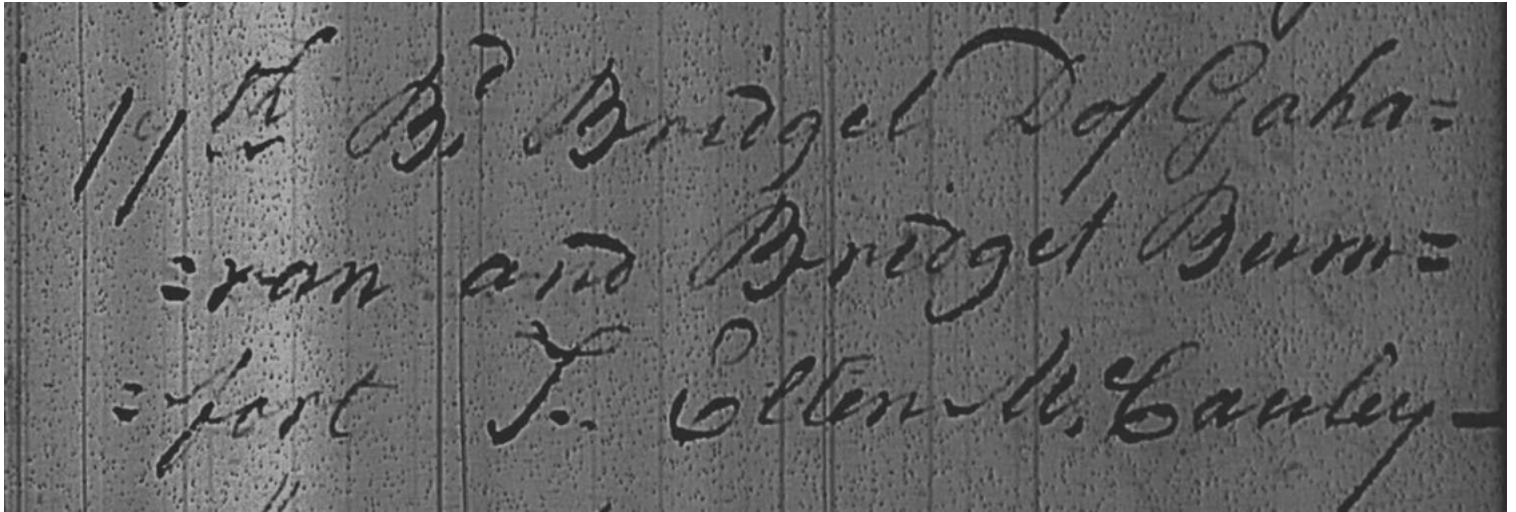 19th Bd Bridget D of Gaha=
=ran and Bridget Bum=
=fort J. Ellen Mc. Cauley